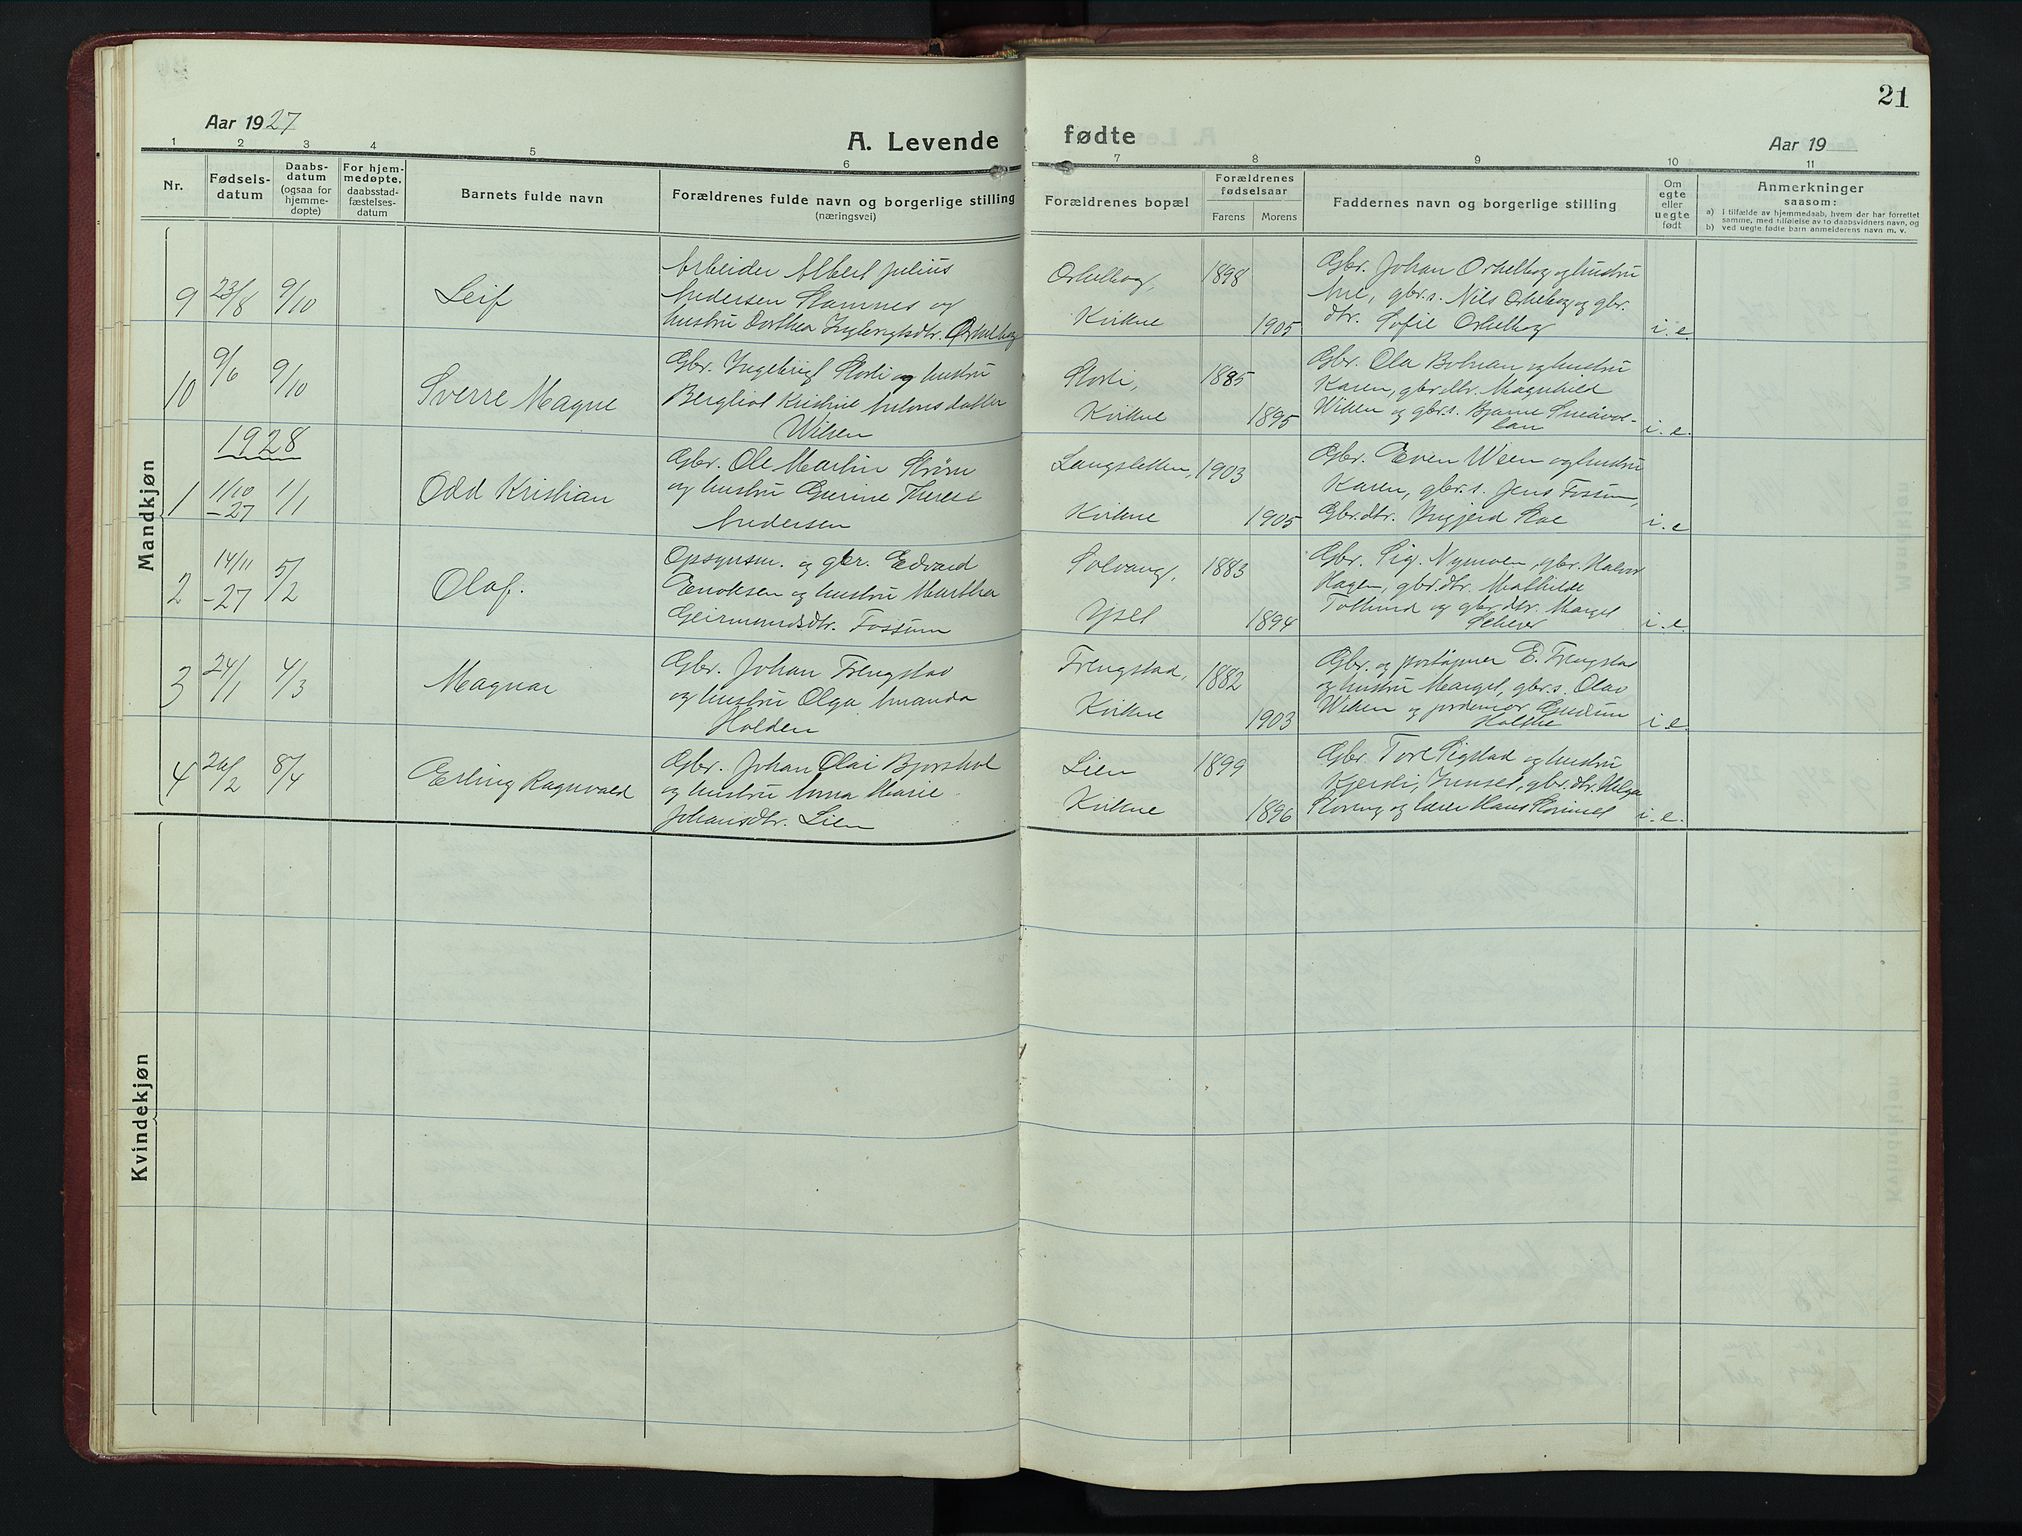 21
Aar 1927
A. Levende fødte
Aar 19
1 2 3 4 5 6 7 8 9 10 11
Nr.
Fødsels-
datum
Daabs-
datum
(ogsaa for
hjemme-
døpte)
For hjem-
medøpte,
daabsstad-
fæstelses-
datum
Barnets fulde navn
Forældrenes fulde navn og borgerlige stilling
(næringsvei)
Forældrenes bopæl
Forældrenes
fødselsaar
Farens Morens
Faddernes navn og borgerlige stilling
Om
egte
eller
uegte
født
Anmerkninger
saasom:
a) I tilfælde av hjemmedaab, hvem der har forrettet
samme, med tilføielse av to daabsvidners navn, og
b) ved uegte fødte barn anmelderens navn m. v.
Mandkjøn
9 23/8 9/10
Leif
Arbeider Albert Julius
Andersen Stamnes og
hustru Dorthea Ingebrigtsdtr. Orkelbog
Orkelbog,
Kvikne
1898
1905
Gbr. Johan Orkelbog og hustru
Ane, gbr.s. Nils Orkelbog og gbr.
dtr. Sofie Orkelbog
i. e.
10 9/6 9/10
Sverre Magne
Gbr. Ingebrigt Storli og hustru
Bergliot Kristine Antonsdatter
Wilsen
Storli,
Kvikne
1885
1895
Gbr. Ola Bolman og hustru
Karen, gbr.dtr. Magnhild
Wilsen og gbr.s. Bjarne Småvol-
lan
i. e.
1928
1 11/10 -27 1/1
Odd Kristian
Gbr. Ole Martin Strøm
og hustru Gurine Therese
Andersen
Langsletten,
Kvikne
1903
1905
Gbr. Even Ween og hustru
Karen, gbr.s. Jens Fossum,
Gbr.dtr. Ingjerd Roe
i. e
2 14/11 -27 5/2
Olaf.
Opsynsm. og gbr. Edvard
Enoksen og hustru Martha
Geirmundsdtr. Fossum
Solvang,
Yset
1883
1894
Gbr. Sig. Nymoen, gbr. Halvor
Hagen, gbr.dtr. Mathilde
og gbr.dtr. Margit
i. e.
3 24/1 4/3
Magnar
Gbr. Johan Frengstad
og hustru Olga Amanda
Holden
Frengstad,
Kvikne
1882
1903
Gbr. og postaapner E. Frengstad
og hustru Margit, gbr.s. Olav
Wilsen og jordemor Gudrun
i. e.
4 26/2 8/4
Erling Ragnvald
Gbr. Johan Olai Bjørshol
og hustru Anna Marie
Johansdtr. Lien
Lien
Kvikne
1899
1896
Gbr. Tore Sigstad og hustru
Kjersti, Innset, gbr.dtr. Helga
Støring og lærer Hans
i. e.
Kvindekjøn